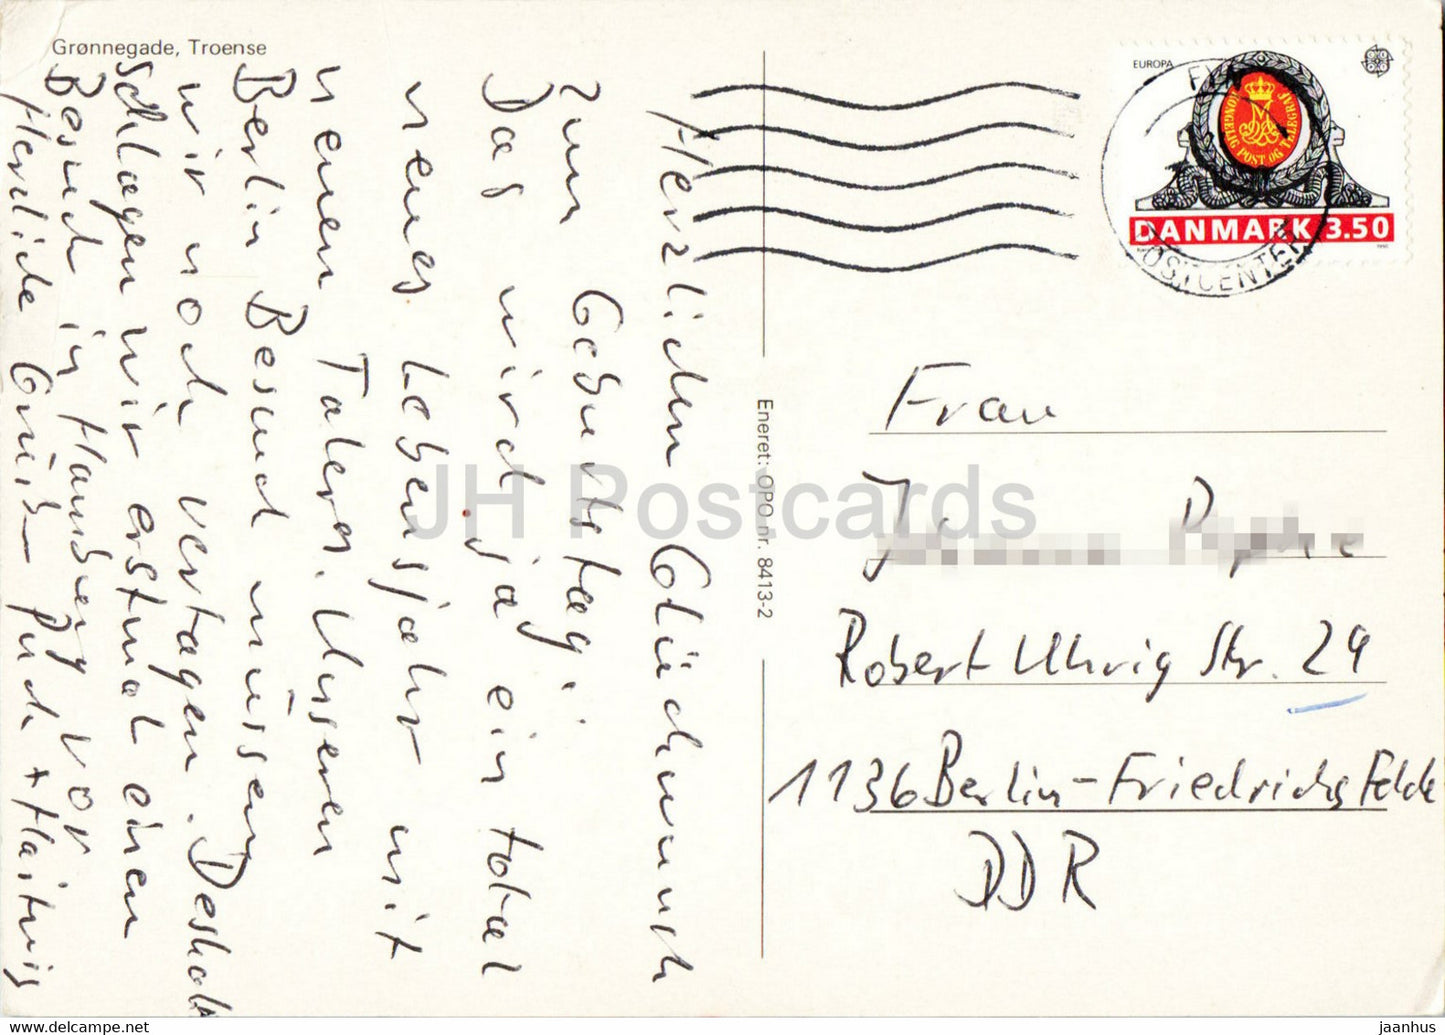 Grønnegade, Troense
Herzlichen Glückwunsch
zum Geburtstag!
Das wird ja ein total
neues Lebensjahr mit
neuen Talern. Unseren
Berlin Besuch müssen
wir noch vertagen. Deshalb
schlagen wir erstmal einen
Besuch in Hamburg vor
Herzliche Grüße
Eneret: OPO nr. 8413-2
EUROPA
KONGELIG POST OG TELEGRAF
DANMARK 3.50
FYN
POSTCENTER
Frau
Robert Uhrig Str. 29
1136 Berlin-Friedrichsfelde
DDR
JH Postcards
www.delcampe.net
jaanhus